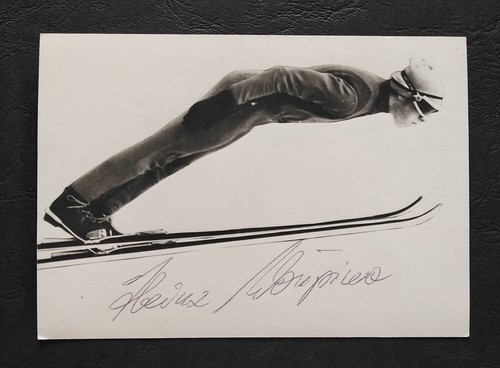 Heinz Wosipiwo